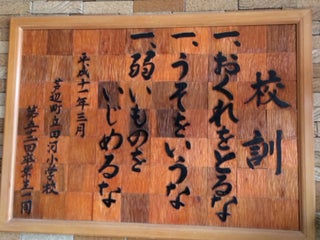 校訓
一、おくれをとるな
一、うそをいうな
一、弱いものを
いじめるな
平成十一年三月
芦辺町立田河小学校
第五二回卒業生一同